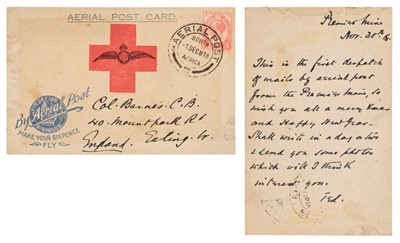 AERIAL POST CARD.
AERIAL POST
SOUTH
1 DEC 1918
AFRICA
By Aerial Post
MAKE YOUR SIXPENCE
FLY
Col. Barnes. C.B.
40. Mount park Rd
Ealing. W.
England.
Premier Mine
Nov. 30th 18.
This is the first despatch
of mails by aerial post
from the Premier Mine, so
wish you all a merry Xmas
and Happy New Year.
Shall write in a day or two
& send you some photos
which will I think
interest you.